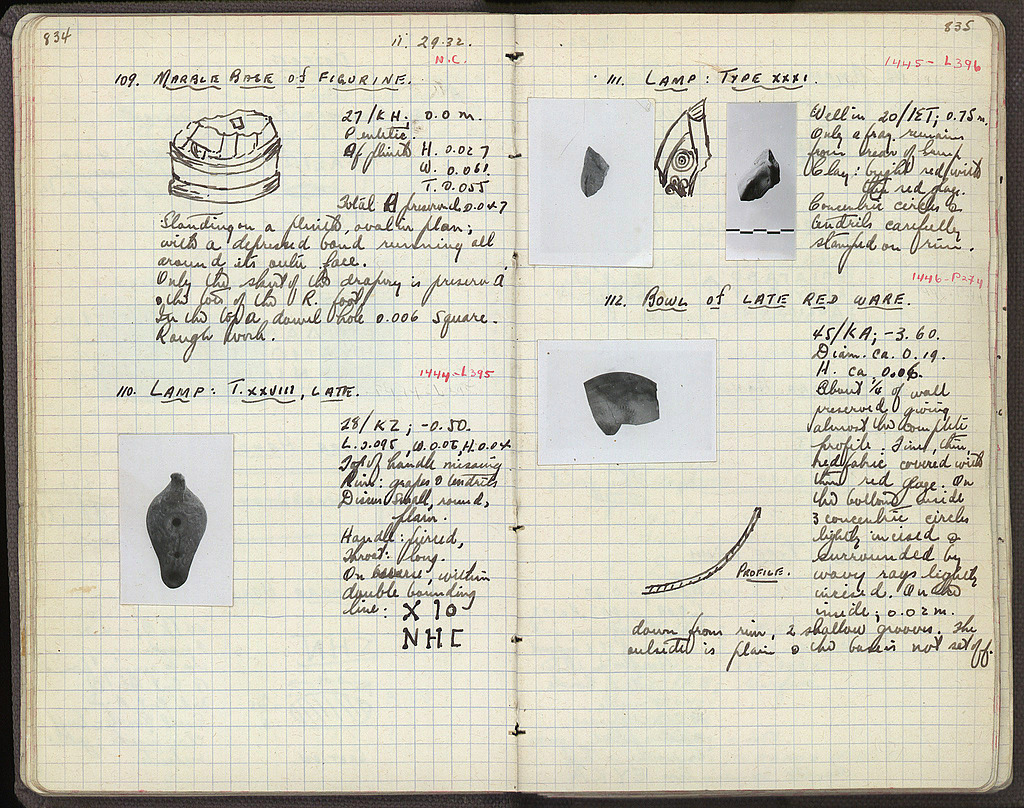 834
ii. 29.32.
N.C.
109. MARBLE BASE of FIGURINE.
27/KH; 0.0 m.
Pentelic.
Of plinth H. 0.027
W. 0.061
T. 0.055
Total H preserved 0.047
Standing on a plinth, oval in plan;
with a depressed band running all
around its outer face.
Only the skirt of the drapery is preserved
& the toes of the R. foot
In the top a dowel hole 0.006 square.
Rough work.
1444-L395
110. LAMP: T. XXVIII, LATE.
28/KZ; -0.50.
L. 0.095, W. 0.06, H. 0.04
Top of handle missing
Rim: grapes & tendrils
Discus small, round,
plain.
Handle: pierced,
Throat: long.
On reverse, within
double bounding
line: X IO
NHC
835
1445-L396
111. LAMP: TYPE XXXI.
Well in 20/IET; 0.75 m.
Only a frag. remains
from rear of lamp
Clay: bright red with
red glaze.
Concentric circles &
tendrils carefully
stamped on rim.
1446-P274
112. BOWL of LATE RED WARE.
45/KA; -3.60.
Diam. ca. 0.19.
H. ca. 0.06.
About 1/4 of wall
preserved giving
almost the complete
profile. Fine, thin,
red fabric covered with
thin red glaze. On
the bottom inside
3 concentric circles
lightly incised &
surrounded by
wavy rays lightly
incised. On the
inside; 0.02 m.
PROFILE.
down from rim, 2 shallow grooves. The
outside is plain & the base is not set off.